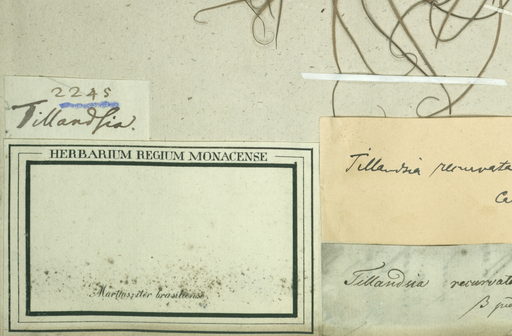 2245
Tillandsia.
HERBARIUM REGIUM MONACENSE
Martii iter brasiliense
Tillandsia recurvata
Ca
Tillandsia recurvata
β